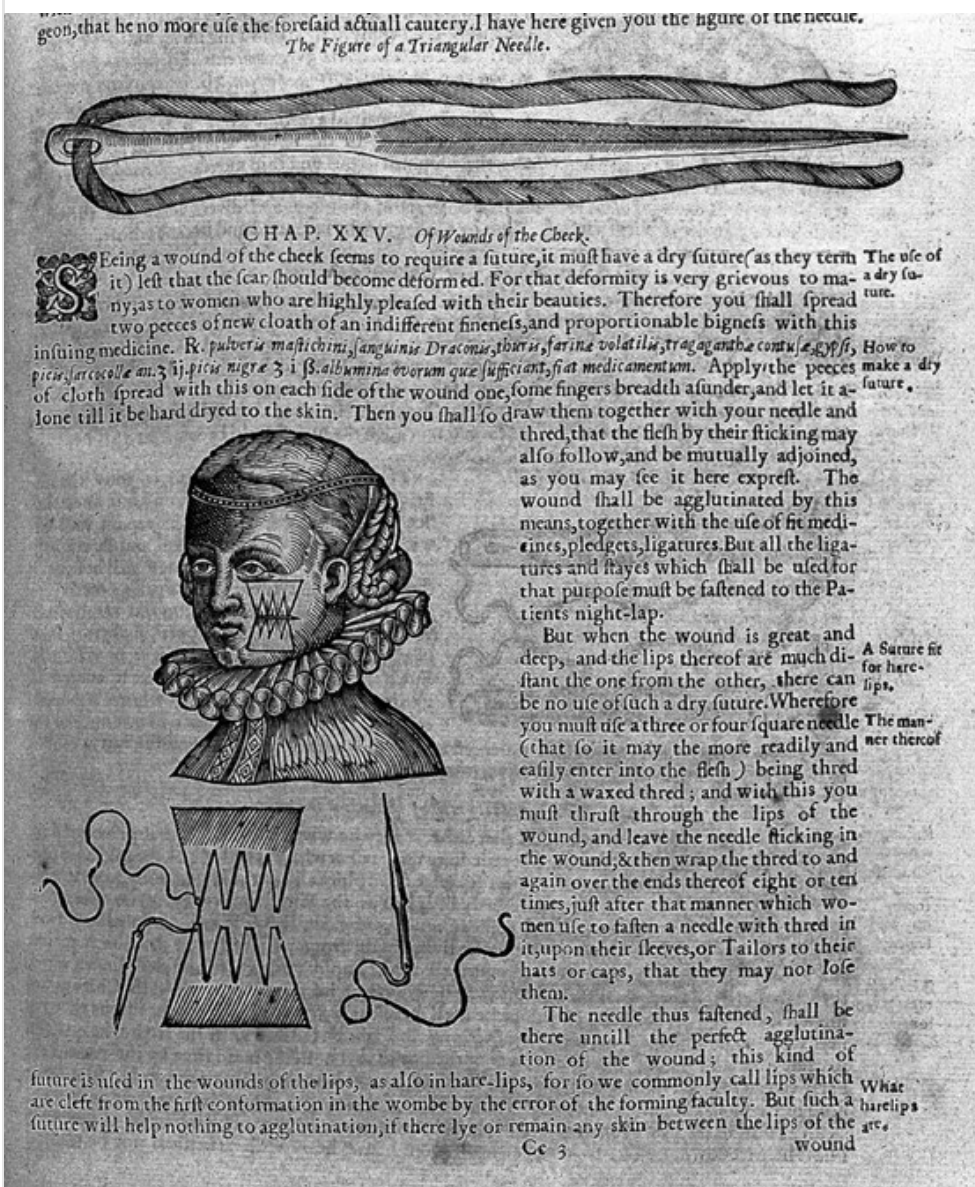 geon,that he no more uſe the foreſaid actuall cautery.I have here given you the figure of the needle.
The Figure of a Triangular Needle.
CHAP. XXV. Of Wounds of the Cheek.
SEeing a wound of the cheek ſeems to require a ſuture,it muſt have a dry ſuture(as they term
it) leſt that the ſcar ſhould become deformed. For that deformity is very grievous to ma-
ny,as to women who are highly pleaſed with their beauties. Therefore you ſhall ſpread
two peeces of new cloath of an indifferent fineneſs,and proportionable bigneſs with this
inſuing medicine. ℞. pulveris maſtichini,ſanguinis Draconis,thuris,farinæ volatilis,tragaganthæ contuſæ,gypſi,
picis,ſarcocollæ an.ʒ ij.picis nigræ ʒ i ß.albumina ovorum quæ ſufficiant,fiat medicamentum. Apply the peeces
of cloth ſpread with this on each ſide of the wound one,ſome fingers breadth aſunder,and let it a-
lone till it be hard dryed to the skin. Then you ſhall ſo draw them together with your needle and
The uſe of
a dry ſu-
ture.
How to
make a dry
ſuture.
thred,that the fleſh by their ſticking may
alſo follow,and be mutually adjoined,
as you may ſee it here expreſt. The
wound ſhall be agglutinated by this
means,together with the uſe of fit medi-
cines,pledgets,ligatures.But all the liga-
tures and ſtayes which ſhall be uſed for
that purpoſe muſt be faſtened to the Pa-
tients night-lap.
But when the wound is great and
deep, and the lips thereof are much di-
ſtant the one from the other, there can
be no uſe of ſuch a dry ſuture.Wherefore
you muſt uſe a three or four ſquare needle
(that ſo it may the more readily and
eaſily enter into the fleſh ) being thred
with a waxed thred ; and with this you
muſt thruſt through the lips of the
wound, and leave the needle ſticking in
the wound;&then wrap the thred to and
again over the ends thereof eight or ten
times,juſt after that manner which wo-
men uſe to faſten a needle with thred in
it,upon their ſleeves,or Tailors to their
hats or caps, that they may not loſe
them.
A Suture fit
for hare-
lips.
The man-
ner thereof
The needle thus faſtened, ſhall be
there untill the perfect agglutina-
tion of the wound ; this kind of
ſuture is uſed in the wounds of the lips, as alſo in hare-lips, for ſo we commonly call lips which
are cleft from the firſt conformation in the wombe by the error of the forming faculty. But ſuch a
ſuture will help nothing to agglutination,if there lye or remain any skin between the lips of the
What
harelips
are.
Cc 3
wound